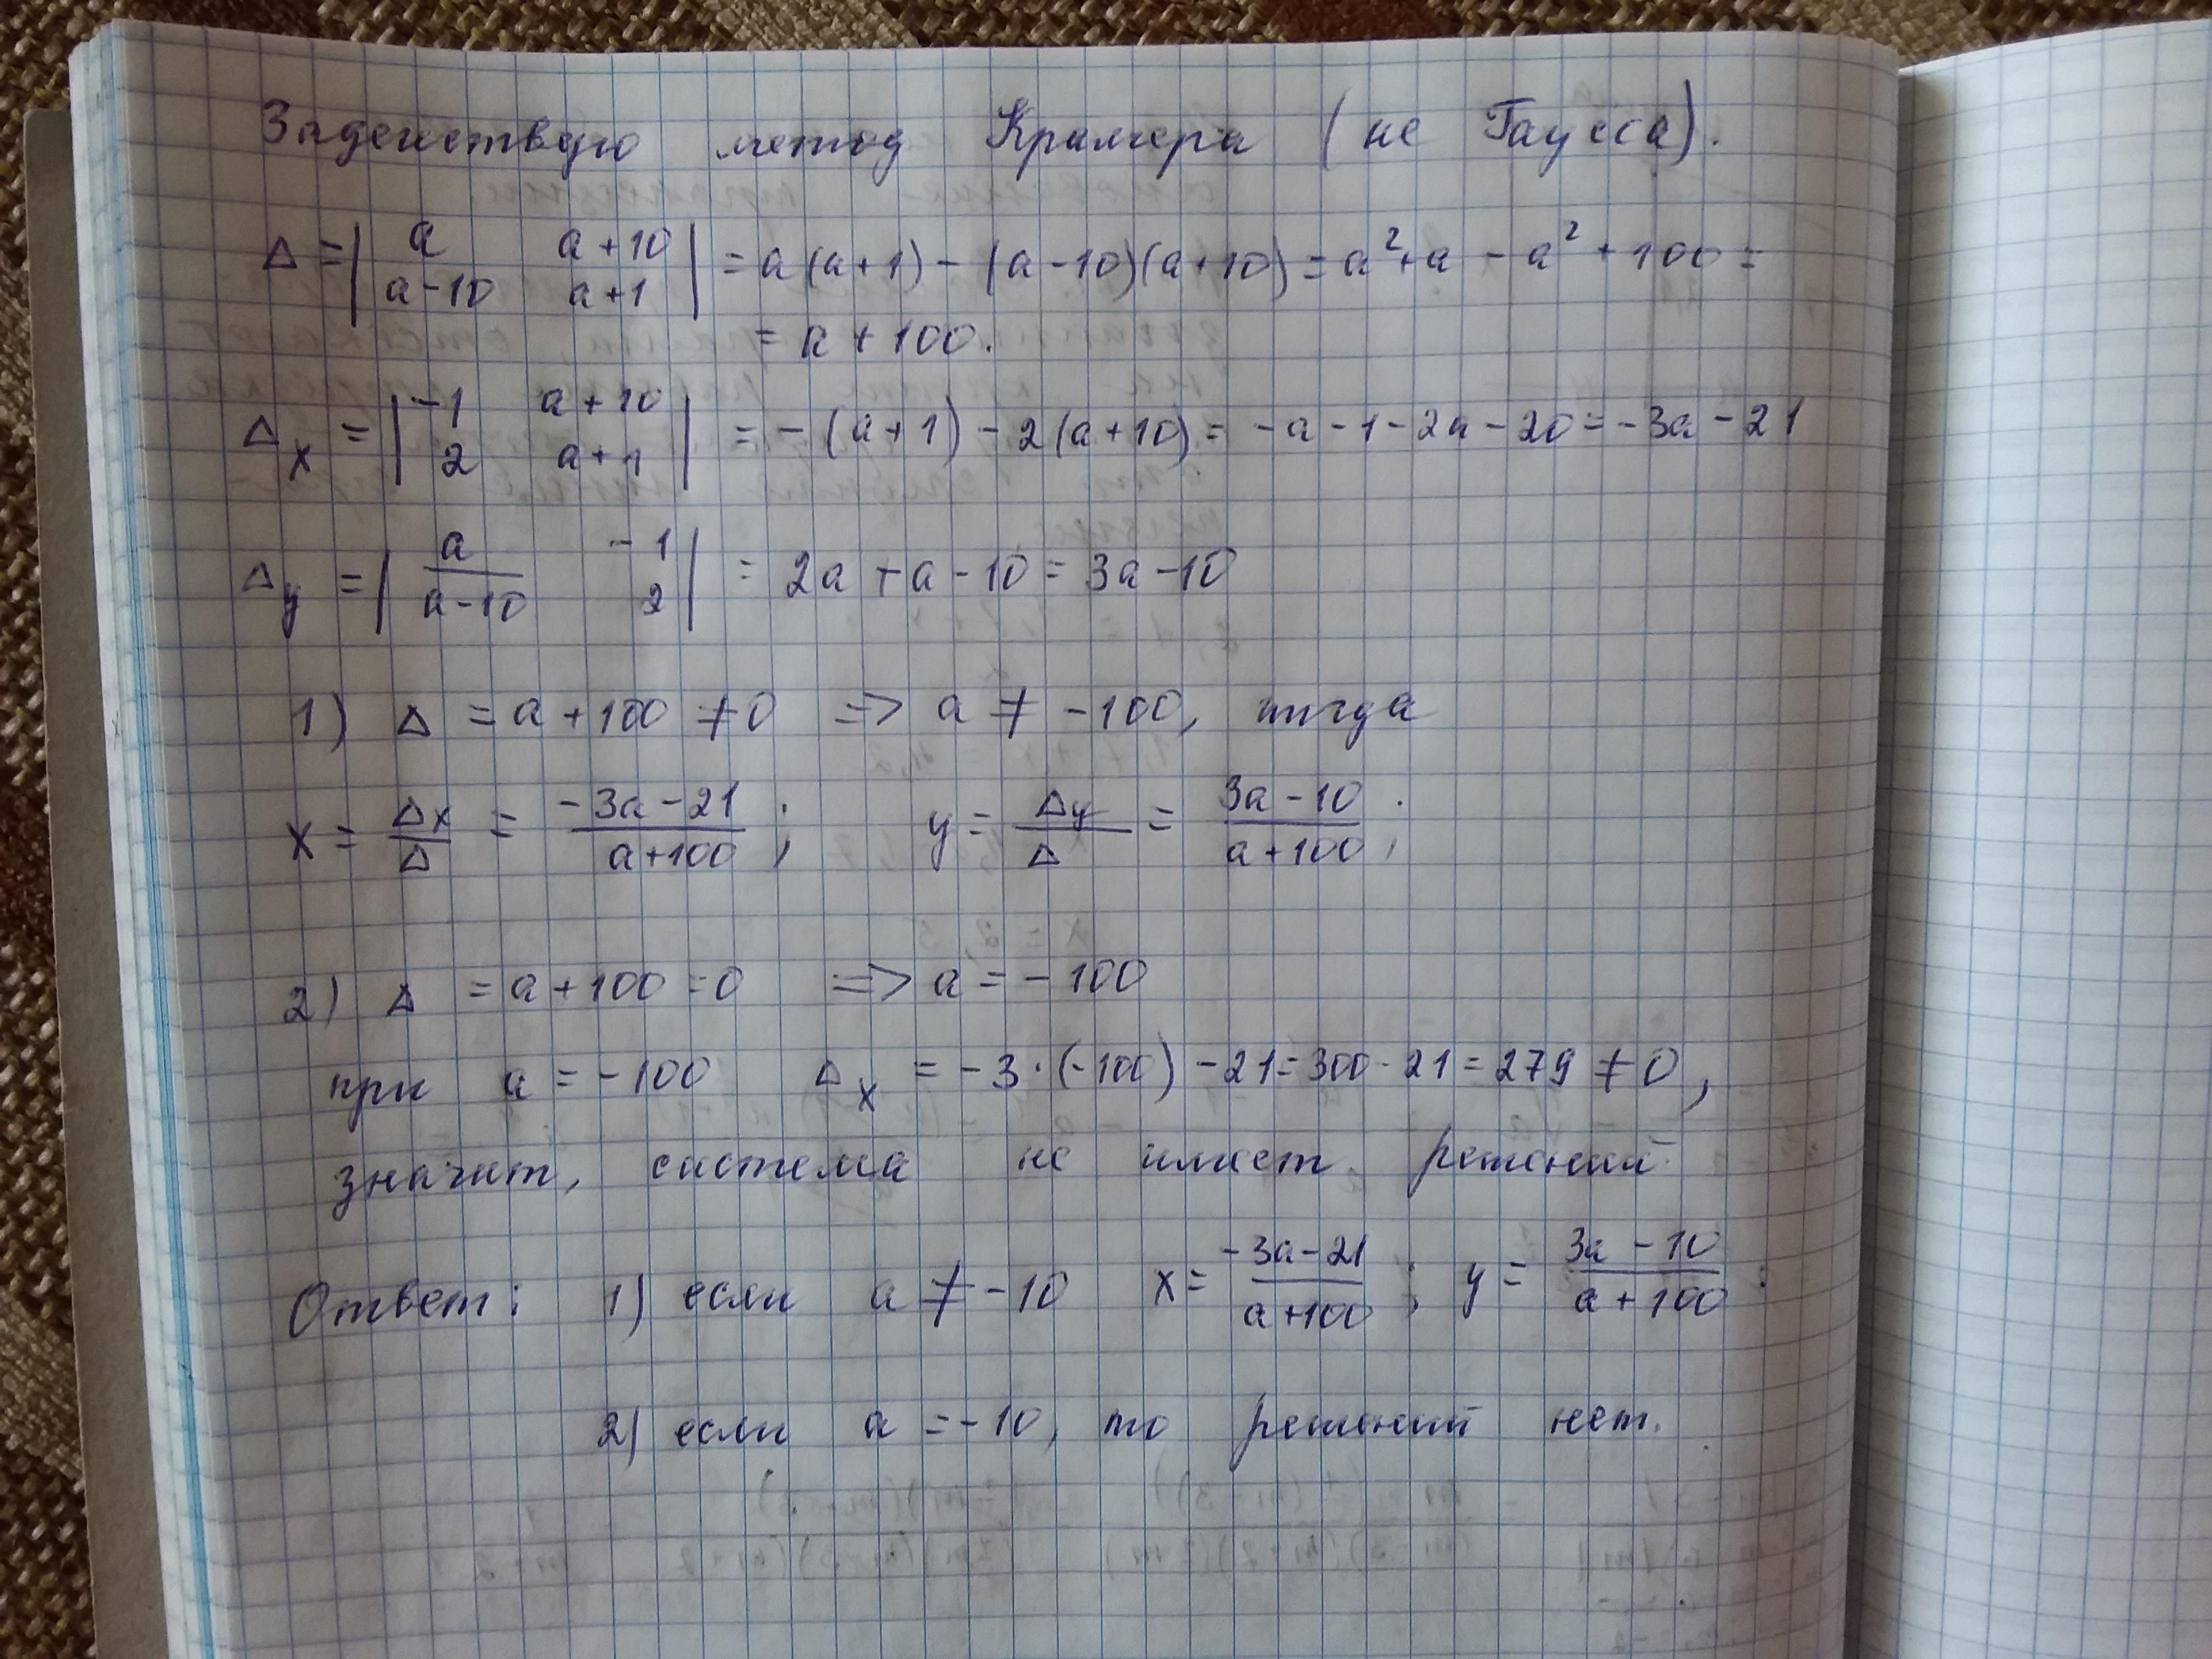 Задействую метод Крамера (не Гаусса).
Δ = | a a+10 | = a(a+1) - (a-10)(a+10) = a² + a - a² + 100 =
| a-10 a+1 |
= a + 100.
Δx = | -1 a+10 | = -(a+1) - 2(a+10) = -a - 1 - 2a - 20 = -3a - 21
| 2 a+1 |
Δy = | a -1 | = 2a + a - 10 = 3a - 10
| a-10 2 |
1) Δ = a + 100 ≠ 0 => a ≠ -100, тогда
x = Δx/Δ = (-3a-21)/(a+100); y = Δy/Δ = (3a-10)/(a+100);
2) Δ = a + 100 = 0 => a = -100
при a = -100 Δx = -3·(-100) - 21 = 300 - 21 = 279 ≠ 0,
значит, система не имеет решений.
Ответ: 1) если a ≠ -10 x = (-3a-21)/(a+100); y = (3a-10)/(a+100);
2) если a = -10, то решений нет.